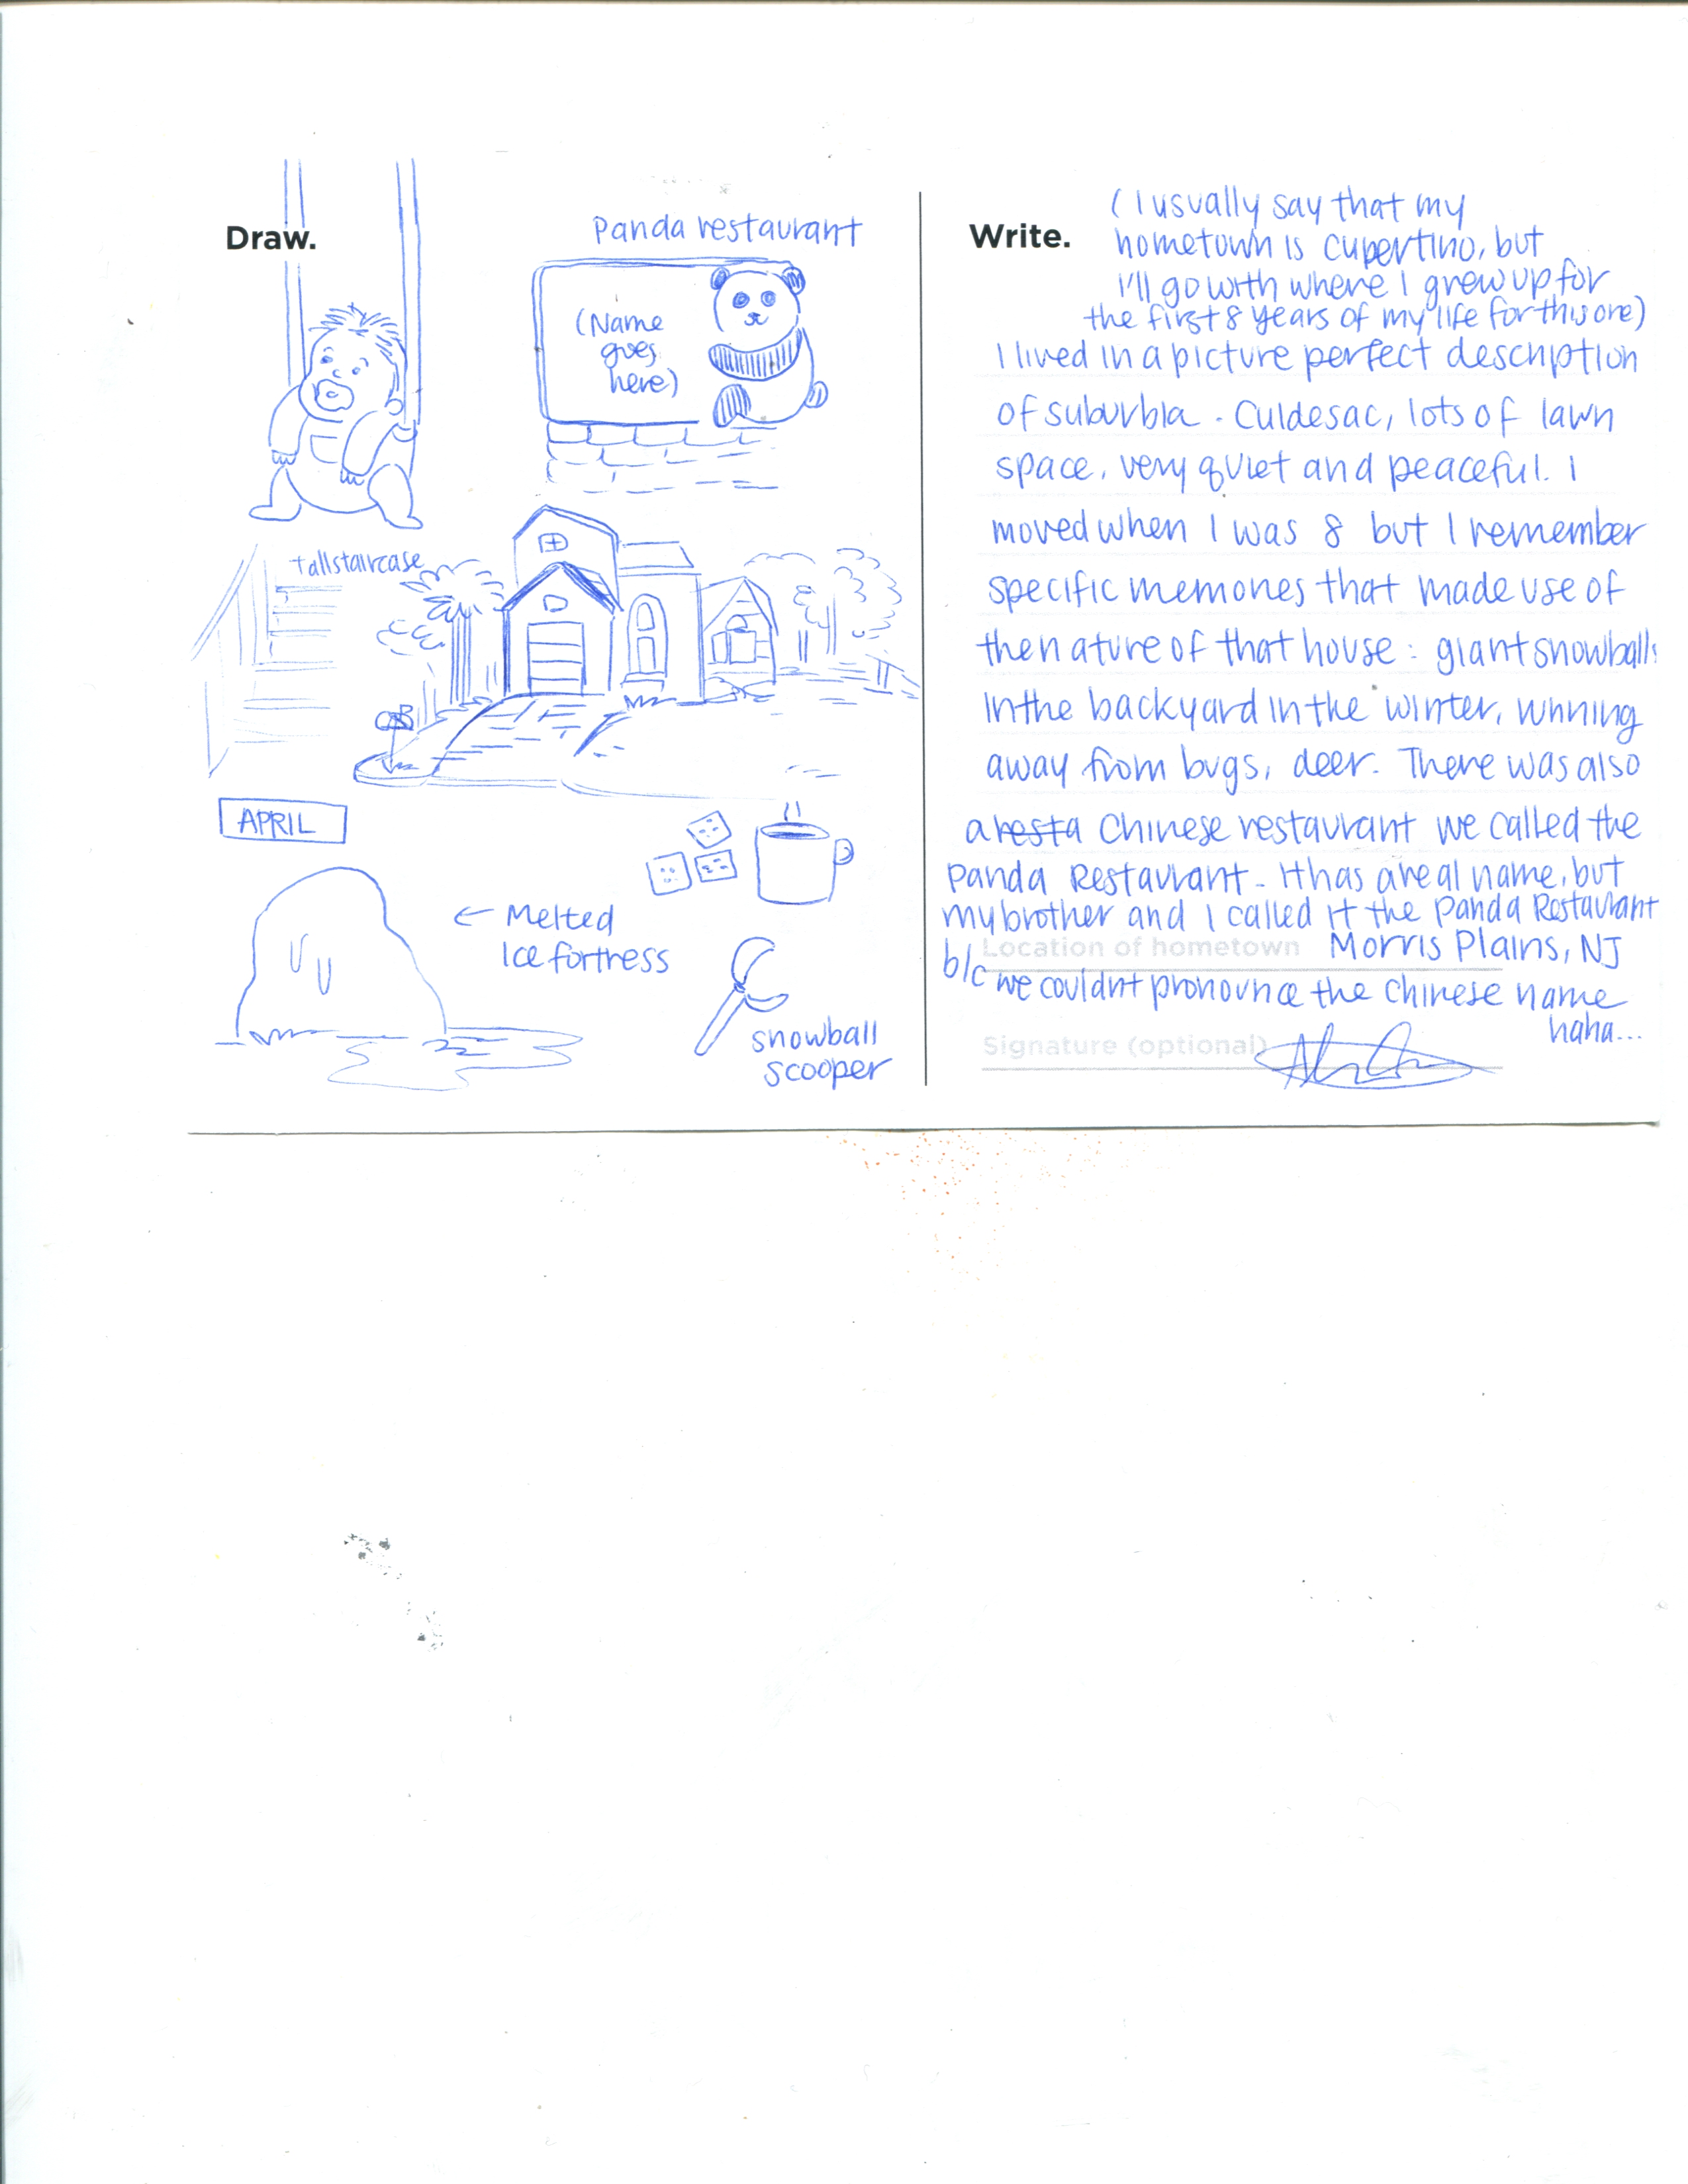 Draw.
Panda restaurant
(Name
goes
here)
tall staircase
APRIL
← Melted
Ice fortress
snowball
scooper
Write.
(I usually say that my
hometown is Cupertino, but
I'll go with where I grew up for
the first 8 years of my life for this one)
I lived in a picture perfect description
of suburbia. Culdesac, lots of lawn
space, very quiet and peaceful. I
moved when I was 8 but I remember
specific memories that made use of
the nature of that house: giant snowballs
in the backyard in the winter, running
away from bugs, deer. There was also
a resta Chinese restaurant we called the
Panda Restaurant. It has a real name, but
my brother and I called it the Panda Restaurant
b/c we couldnt pronounce the Chinese name
haha...
Location of hometown Morris Plains, NJ
Signature (optional)